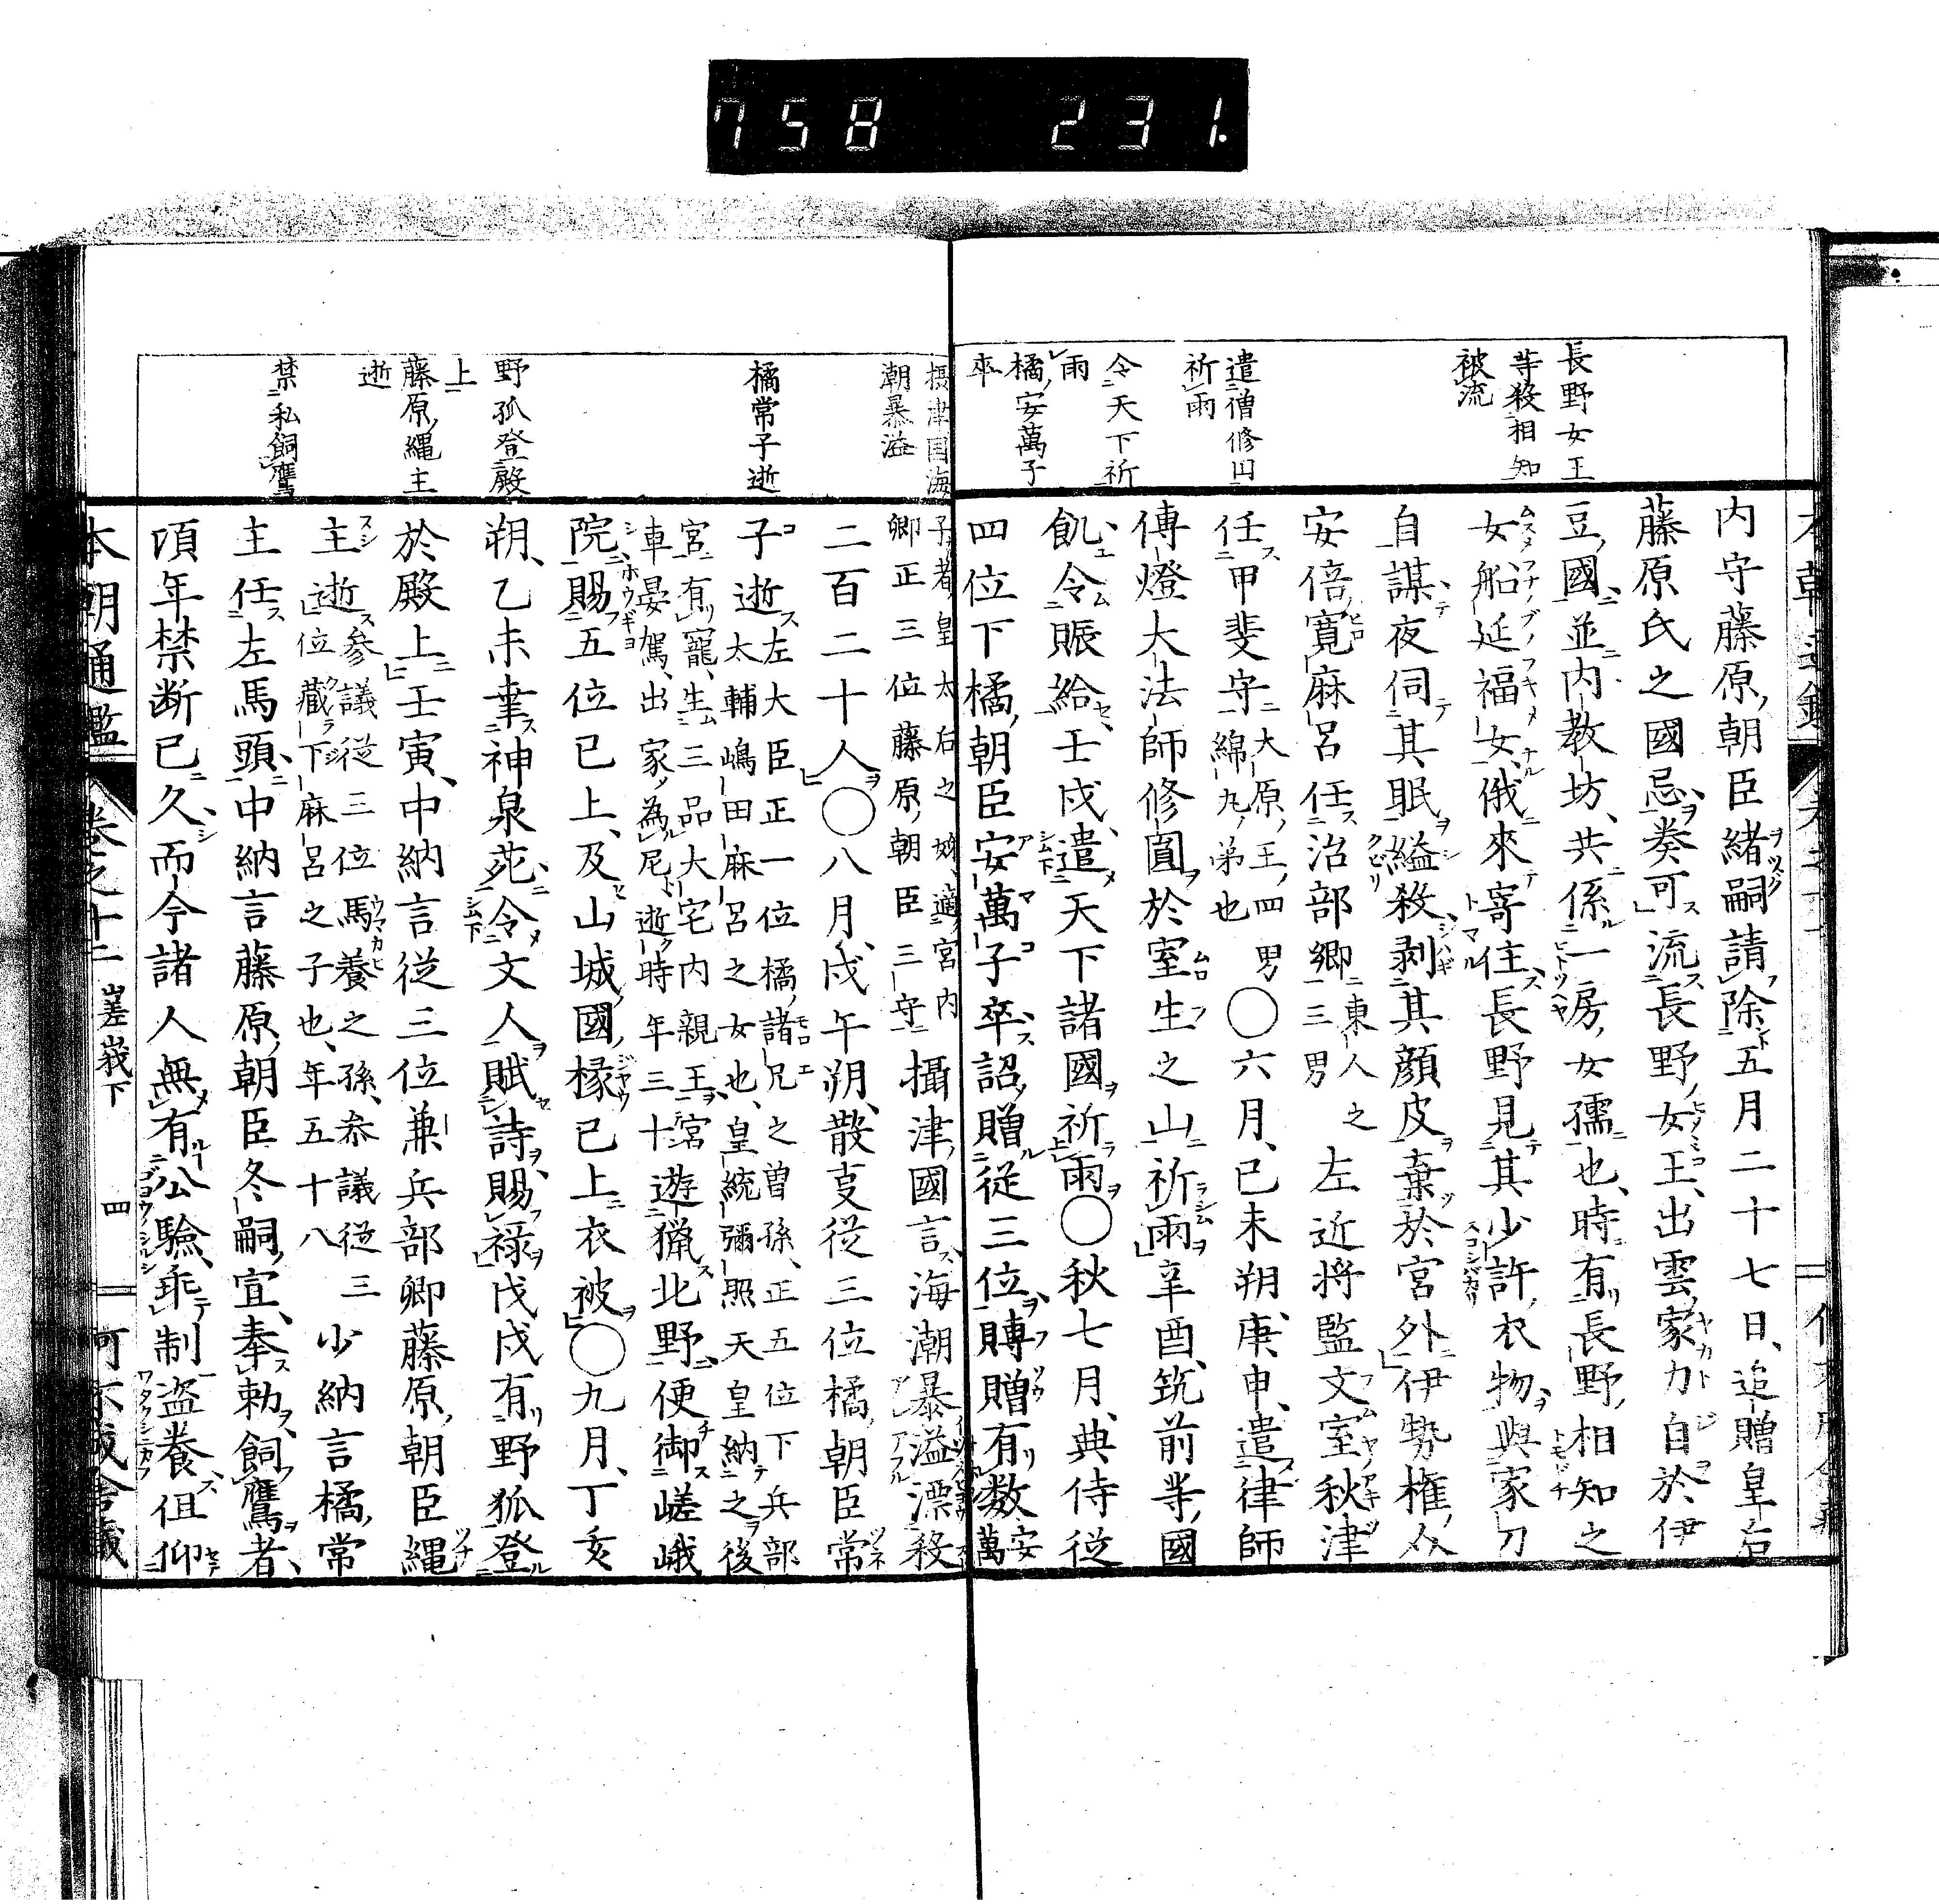 758 231.
長野女王
等殺相知
被流
遣僧修円
祈雨
令天下祈
雨
橘安萬子
卒
内守藤原朝臣緒嗣請除五月二十七日追贈皇后
藤原氏之國忌奏可流長野女王出雲家刀自於伊
豆國並内教坊共係一房女孺也時有長野相知之
女船延福女俄來寄住長野見其少許衣物與家刀
自謀夜伺其眠縊殺剥其顔皮棄於宮外伊勢權介
安倍寛麻呂任治部卿東人之三男左近將監文室秋津
任甲斐守大原王四男綿九弟也○六月己未朔庚申遣律師
傳燈大法師修圓於室生之山祈雨辛酉筑前等國
飢令賑給壬戌遣天下諸國祈雨○秋七月典侍從
四位下橘朝臣安萬子卒詔贈從三位賻贈有數安萬
摂津国海
朝暴溢
橘常子逝
野狐登殿
上
藤原縄主
逝
禁私飼鷹
子者皇太后之姉適宮内
卿正三位藤原朝臣三守攝津國言海潮暴溢漂殺
二百二十人○八月戊午朔散叓從三位橘朝臣常
子逝左大臣正一位橘諸兄之曽孫正五位下兵部
太輔嶋田麻呂之女也皇統彌照天皇納之後
宮有寵生三品大宅内親王宮
車晏駕出家為尼逝時年三十遊猟北野便御嵯峨
院賜五位已上及山城國掾已上衣被○九月丁亥
朔乙未幸神泉苑令文人賦詩賜禄戊戌有野狐登
於殿上壬寅中納言從三位兼兵部卿藤原朝臣縄
主逝参議從三位馬養之孫参議從三
位藏下麻呂之子也年五十八少納言橘常
主任左馬頭中納言藤原朝臣冬嗣宣奉勅飼鷹者
項年禁断已久而今諸人無有公驗乖制盗養但仰
本朝通鑑 卷之十二 嵯峩下 四